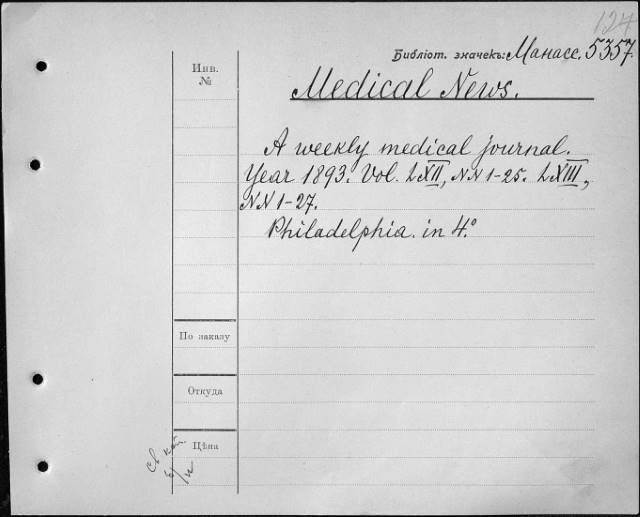 124
Библіот. значекъ: Манасс. 5357.
Инв.
№
Medical News.
A weekly medical journal.
Year 1893. Vol. LXII, NN 1-25. LXIII,
NN 1-27.
Philadelphia. in 4.°
По заказу
Откуда
Цѣна